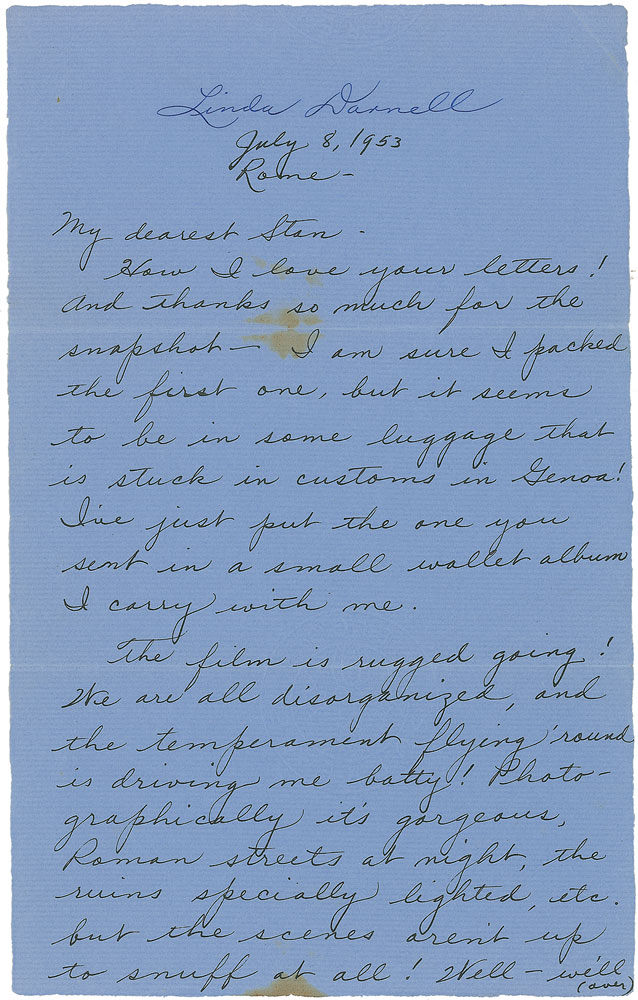 Linda Darnell
July 8, 1953
Rome -
My dearest Stan -
How I love your letters!
And thanks so much for the
snapshot - I am sure I packed
the first one, but it seems
to be in some luggage that
is stuck in customs in Genoa!
I've just put the one you
sent in a small wallet album
I carry with me.
The film is rugged going!
We are all disorganized, and
the temperament flying 'round
is driving me batty! Photo-
graphically it's gorgeous,
Roman streets at night, the
ruins specially lighted, etc.
but the scenes aren't up
to snuff at all! Well - we'll
(over)